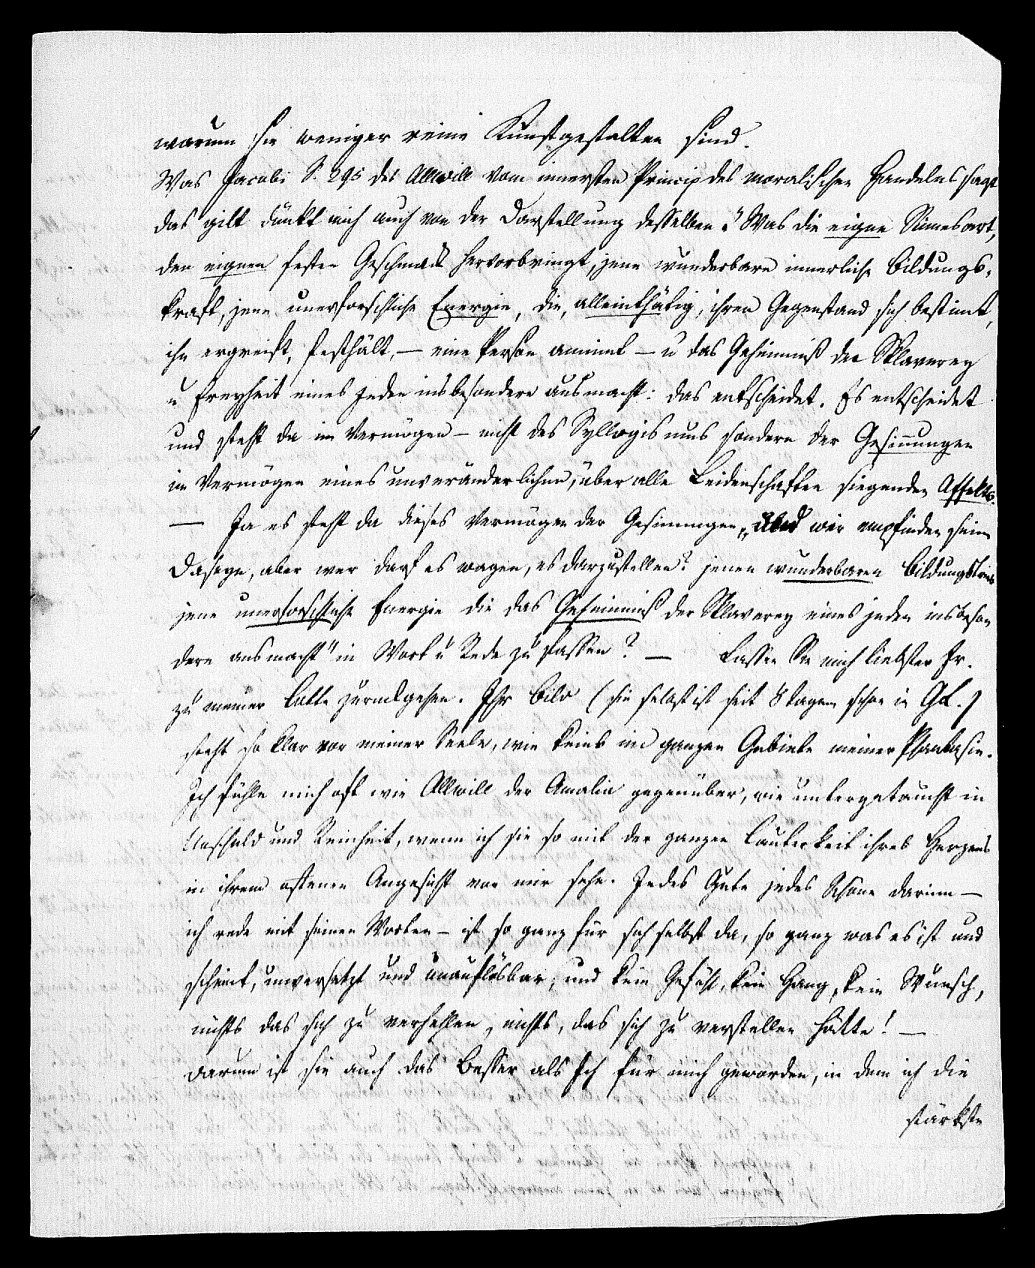 warum sie weniger reine Kunstgestalten sind.
Was Jacobi S. 295 des Allwill vom innersten Princip des moralischen Handelns sagt
das gilt dünkt mich auch von der Darstellung desselben: „Was die eigne Sinnesart,
den eignen festen Geschmack hervorbringt, jene wunderbare innerliche Bildungs-
kraft, jene unerforschliche Energie, die, alleinthätig, ihren Gegenstand sich bestimt,
ihn ergreift, festhält, — eine Person annimt — u das Geheimniß der Sklaverey
u Freyheit eines Jeden insbesondere ausmacht: das entscheidet. Es entscheidet
und steht da im Vermögen — nicht des Syllogismus sondern der Gesinnungen
im Vermögen eines unveränderlichen, über alle Leidenschaften siegenden Affekts
— Ja es steht da dieses Vermögen der Gesinnungen, und wir empfinden sein
Daseyn, aber wer darf es wagen, es darzustellen? jenen wunderbaren Bildungstrieb
jene unerforschliche Energie die das Geheimniß der Sklaverey eines jeden insbeson
dere ausmacht" in Wort u Rede zu fassen? — Lassen Sie mich liebster Fr.
zu meiner Lotte zurückgehen. Ihr Bild (sie selbst ist seit 8 tagen schon in Gk.)
steht so klar vor meiner Seele, wie keins im ganzen Gebiete meiner Phantasie.
Ich fühle mich oft wie Allwill der Amalia gegenüber, wie untergetaucht in
Unschuld und Reinheit, wenn ich sie so mit der ganzen Lauterkeit ihres Herzens
in ihrem offenen Angesicht vor mir sehe. Jedes Gute jedes Schöne darinn —
ich rede mit seinen Worten — ist so ganz für sich selbst da, so ganz was es ist und
scheint, unversetzt und unauflösbar; und kein Gefühl, kein Hang, kein Wunsch,
nichts das sich zu verhehlen, nichts, das sich zu verstellen hätte! —
Darum ist sie auch das bessere Ich für mich geworden, in dem ich die
stärkste